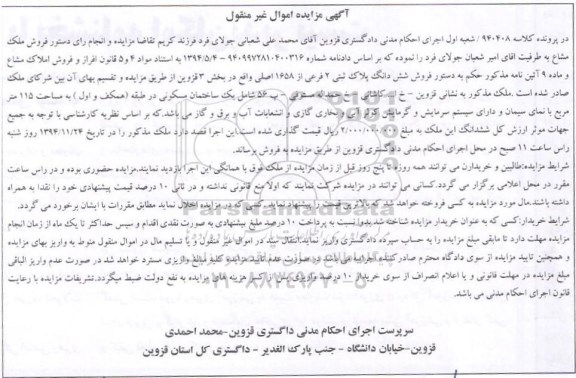 آگهی مزایده اموال غیر منقول
در پرونده کلاسه ۹۴۰۴۰۸ شعبه اول اجرای احکام مدنی دادگستری قزوین آقای محمد علی شعبانی جولای فرد فرزند کریم تقاضا مزایده و انجام رای دستور فروش ملک
مشاع به طرفیت آقای امیر شعبان جولای فرد را نموده که بر اساس دادنامه شماره ۹۴۰۹۹۷۲۸۱۰۴۰۰۳۱۶ – ۱۳۹۴/۵/۴ به استناد مواد ۴ و ۵ قانون افراز و فروش املاک مشاع
و ماده ۹ آئین نامه مذکور حکم به دستور فروش شش دانگ پلاک ثبتی ۲ فرعی از ۱۶۵۸ اصلی واقع در بخش ۳ قزوین از طریق مزایده و تقسیم بهای آن بین شرکای ملک
صادر شده است. ملک مذکور به نشانی قزوین – خ ا... کاشانی – خ حمداله مستوفی – پ ۵۶ شامل یک ساختمان مسکونی در طبقه (همکف و اول) به مساحت ۱۱۵ متر
مربع با نمای سیمان و دارای سیستم سرمایش و گرمایش کولر آبی و بخاری گازی و انشعابات آب و برق و گاز می باشد.که بر اساس نظریه کارشناسی با توجه به جمیع
جهات موثر ارزش کل ششدانگ این ملک به مبلغ ۲/۰۰۰/۰۰۰/۰۰۰ ریال قیمت گذاری شده است.این اجرا قصد دارد ملک مذکور را در تاریخ ۱۳۹۴/۱۱/۲۴ روز شنبه
راس ساعت ۱۱ صبح در محل اجرای احکام مدنی دادگستری قزوین از طریق مزایده به فروش برساند.
شرایط مزایده:طالبین و خریداران می توانند همه روزه تا پنج روز قبل از زمان مزایده از ملک فوق با هماهنگی این اجرا بازدید نمایند.مزایده حضوری بوده و در راس ساعت
مقرر در محل اعلامی برگزار می گردد.کسانی می توانند در مزایده شرکت نمایند که اولا منع قانونی نداشته و در ثانی ۱۰ درصد قیمت پیشنهادی خود را نقدا به همراه
داشته باشند.مال مورد مزایده به کسی فروخته خواهد شد که بالاترین قیمت را پیشنهاد نماید.کسی که در مزایده اخلال نماید مطابق مقررات با ایشان برخورد می گردد.
شرایط خریدار:کسی که به عنوان خریدار مزایده شناخته شد بدوا نسبت به پرداخت ۱۰ درصد مبلغ پیشنهادی به صورت نقدی اقدام و سپس حداکثر تا یک ماه از زمان انجام
مزایده مهلت دارد تا مابقی مبلغ مزایده را به حساب سپرده دادگستری واریز نماید.انتقال سند در اموال غیر منقول و یا تسلیم مال در اموال منقول منوط به واریز بهای مزایده
و همچنین تایید مزایده از سوی دادگاه محترم صادر کننده اجرائیه می باشد در صورت عدم تایید مزایده کلیه مبلغ واریزی مسترد خواهد شد در صورت عدم واریز الباقی
مبلغ مزایده در مهلت قانونی و یا اعلام انصراف از سوی خریدار ۱۰ درصد واریزی پس از کسر هزینه های مزایده به نفع دولت ضبط میگردد.تشریفات مزایده با رعایت
قانون اجرای احکام مدنی می باشد.
سرپرست اجرای احکام مدنی دادگستری قزوین-محمد احمدی
قزوین-خیابان دانشگاه – جنب پارک الغدیر – دادگستری کل استان قزوین
ParsNamadData
۰۲۱-۸۸۳۴۹۶۷۰-۵